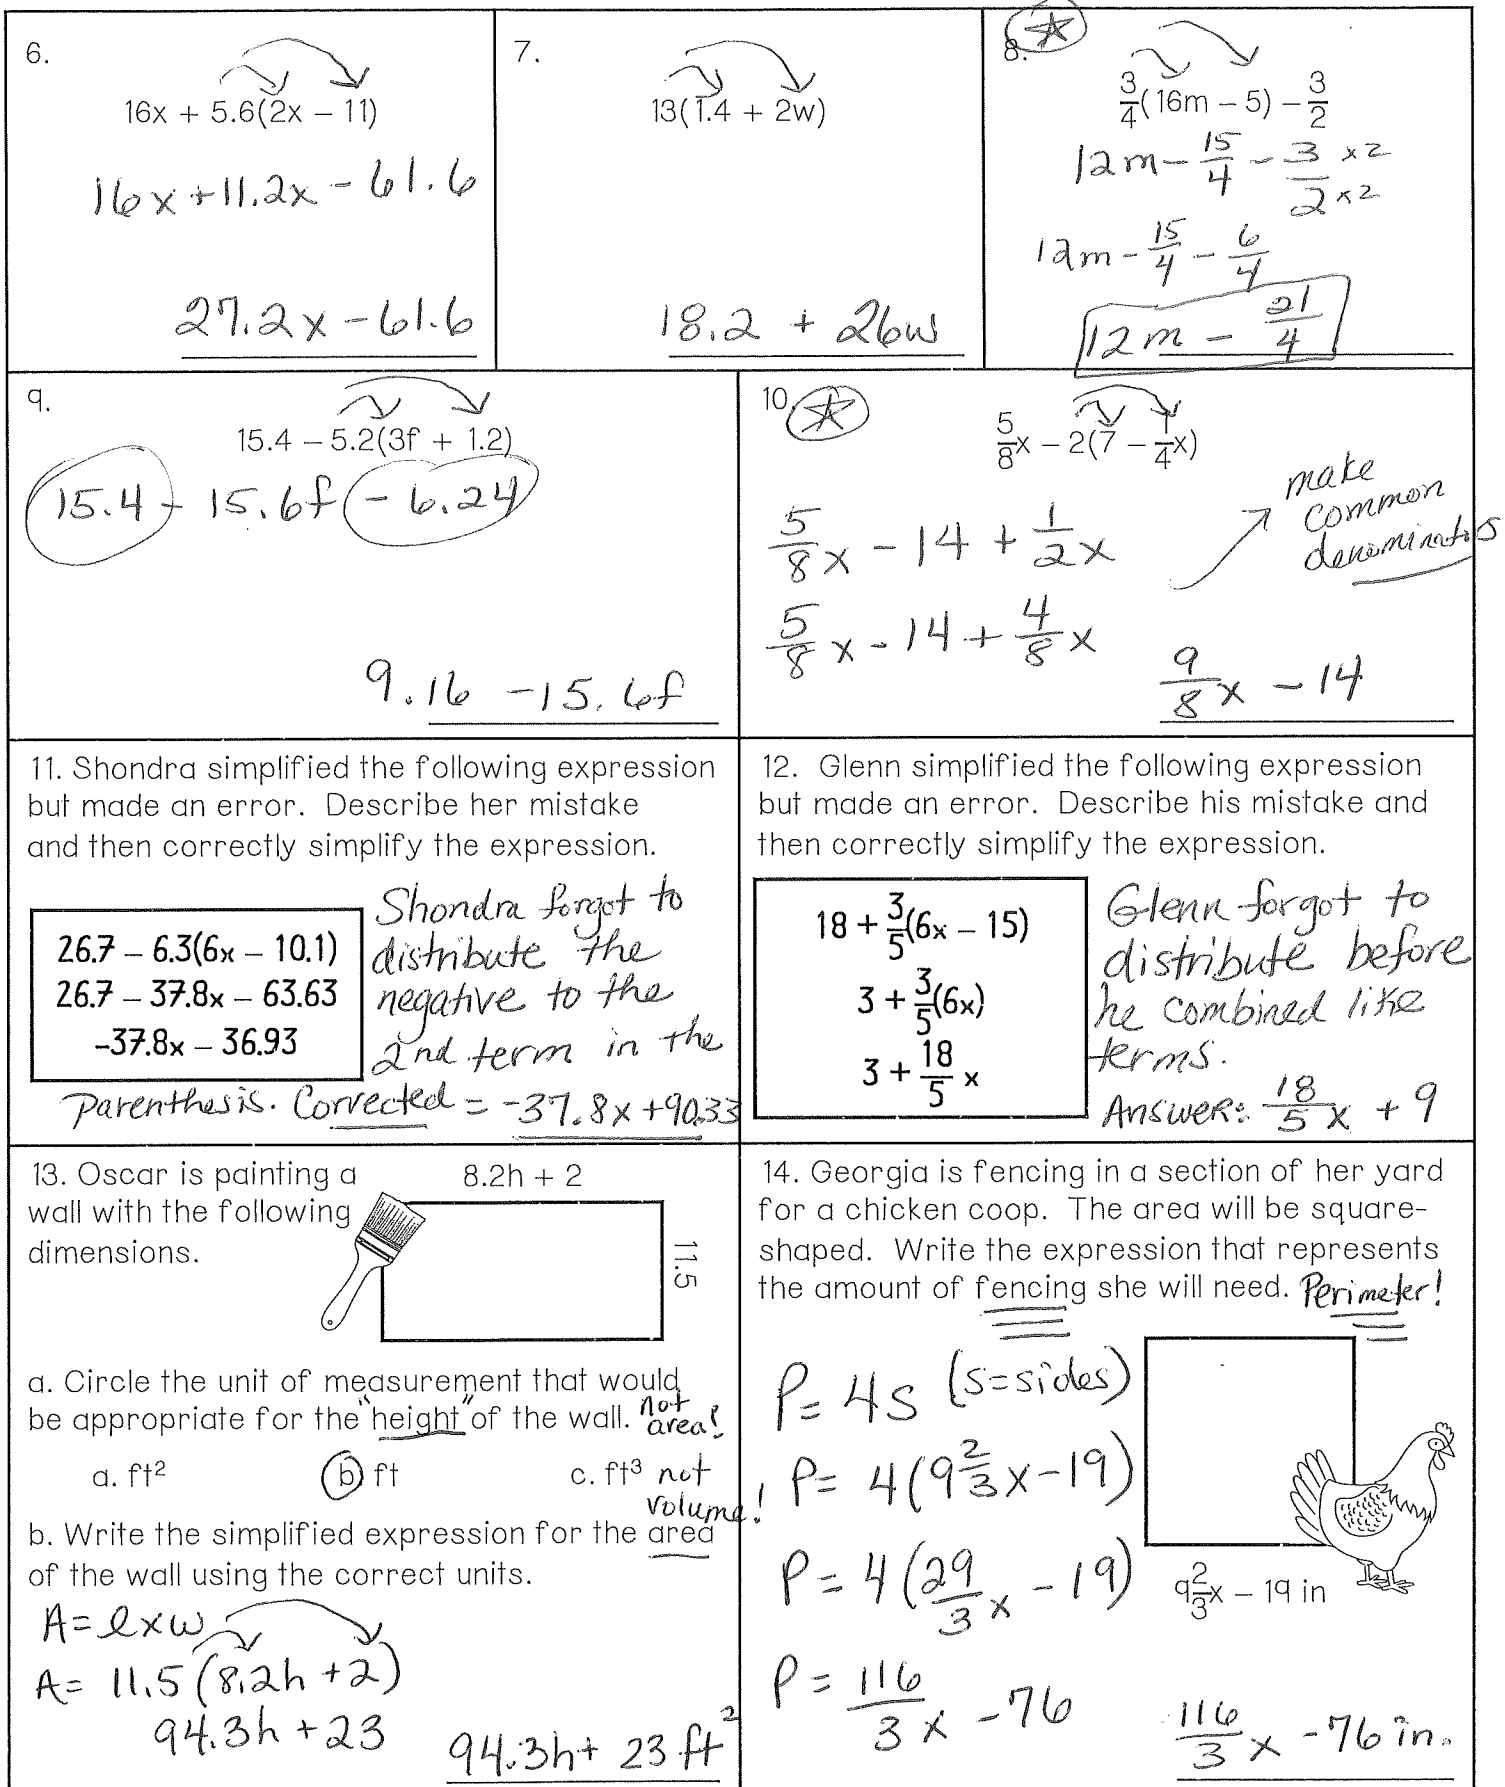 6.
16x + 5.6(2x – 11)
16x + 11.2x - 61.6
27.2x - 61.6
7.
13(1.4 + 2w)
18.2 + 26w
8.
3/4(16m – 5) – 3/2
12m - 15/4 - 3/2 x2 x2
12m - 15/4 - 6/4
12m - 21/4
9.
15.4 – 5.2(3f + 1.2)
15.4 - 15.6f - 6.24
9.16 - 15.6f
10.
5/8x – 2(7 – 1/4x)
make
common
denominators
5/8x - 14 + 1/2x
5/8x - 14 + 4/8x
9/8x - 14
11. Shondra simplified the following expression
but made an error. Describe her mistake
and then correctly simplify the expression.
26.7 – 6.3(6x – 10.1)
26.7 – 37.8x – 63.63
-37.8x – 36.93
Shondra forgot to
distribute the
negative to the
2nd term in the
Parenthesis. Corrected = -37.8x + 90.33
12. Glenn simplified the following expression
but made an error. Describe his mistake and
then correctly simplify the expression.
18 + 3/5(6x – 15)
3 + 3/5(6x)
3 + 18/5 x
Glenn forgot to
distribute before
he combined like
terms.
Answer: 18/5 x + 9
13. Oscar is painting a
wall with the following
dimensions.
8.2h + 2
11.5
a. Circle the unit of measurement that would
be appropriate for the "height" of the wall. not area!
a. ft²
b. ft
c. ft³ not volume!
b. Write the simplified expression for the area
of the wall using the correct units.
A = l x w
A = 11.5(8.2h + 2)
94.3h + 23
94.3h + 23 ft²
14. Georgia is fencing in a section of her yard
for a chicken coop. The area will be square-
shaped. Write the expression that represents
the amount of fencing she will need. Perimeter!
P = 4s (s = sides)
P = 4(9 2/3x - 19)
P = 4(29/3x - 19)
9 2/3x – 19 in
P = 116/3x - 76
116/3x - 76 in.